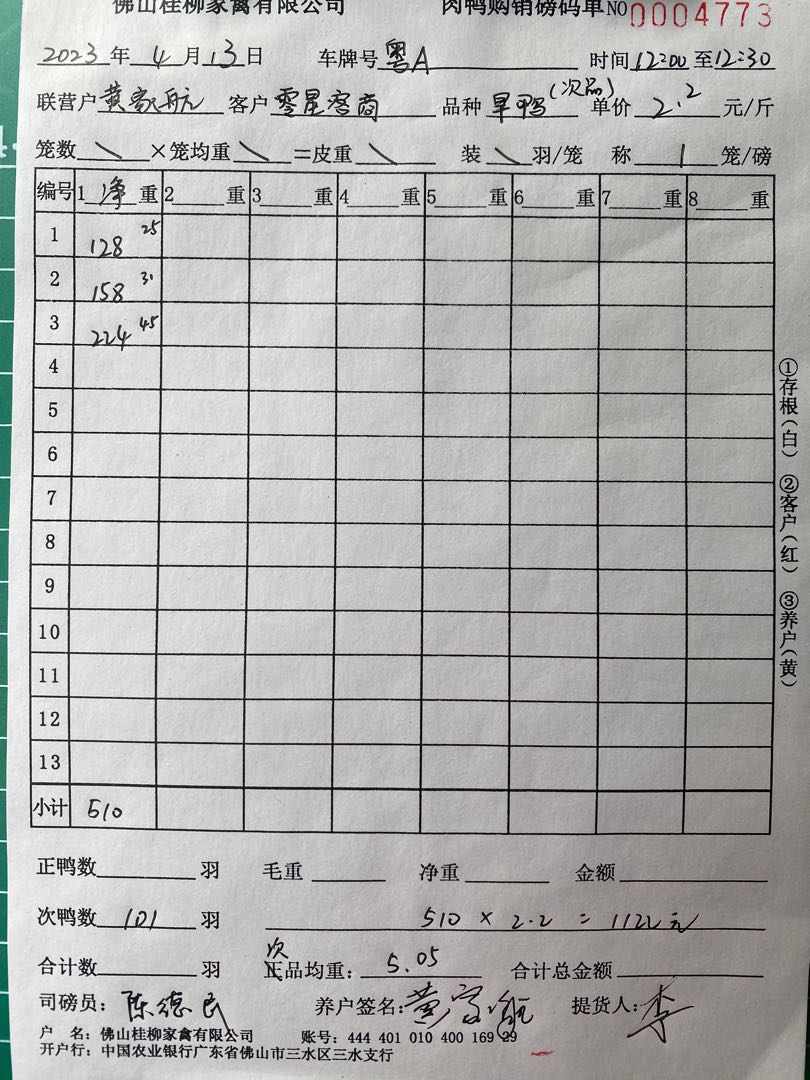 佛山桂柳家禽有限公司 肉鸭购销磅码单 NO 0004773
2023年4月13日 车牌号粤A 时间12:00至12:30
联营户黄家航 客户零星客商 品种旱鸭(次品) 单价2.2元/斤
笼数\×笼均重\=皮重\ 装\羽/笼 称1笼/磅
编号 1净重 2重 3重 4重 5重 6重 7重 8重
1 128 25
2 158 31
3 224 45
4
5
6
7
8
9
10
11
12
13
小计 510
正鸭数 羽 毛重 净重 金额
次鸭数101羽 510×2.2=1122元
合计数 羽 次品均重:5.05 合计总金额
司磅员:陈德民 养户签名:黄家航 提货人:李
户 名:佛山桂柳家禽有限公司 账号:444 401 010 400 169 29
开户行:中国农业银行广东省佛山市三水区三水支行
①存根(白) ②客户(红) ③养户(黄)